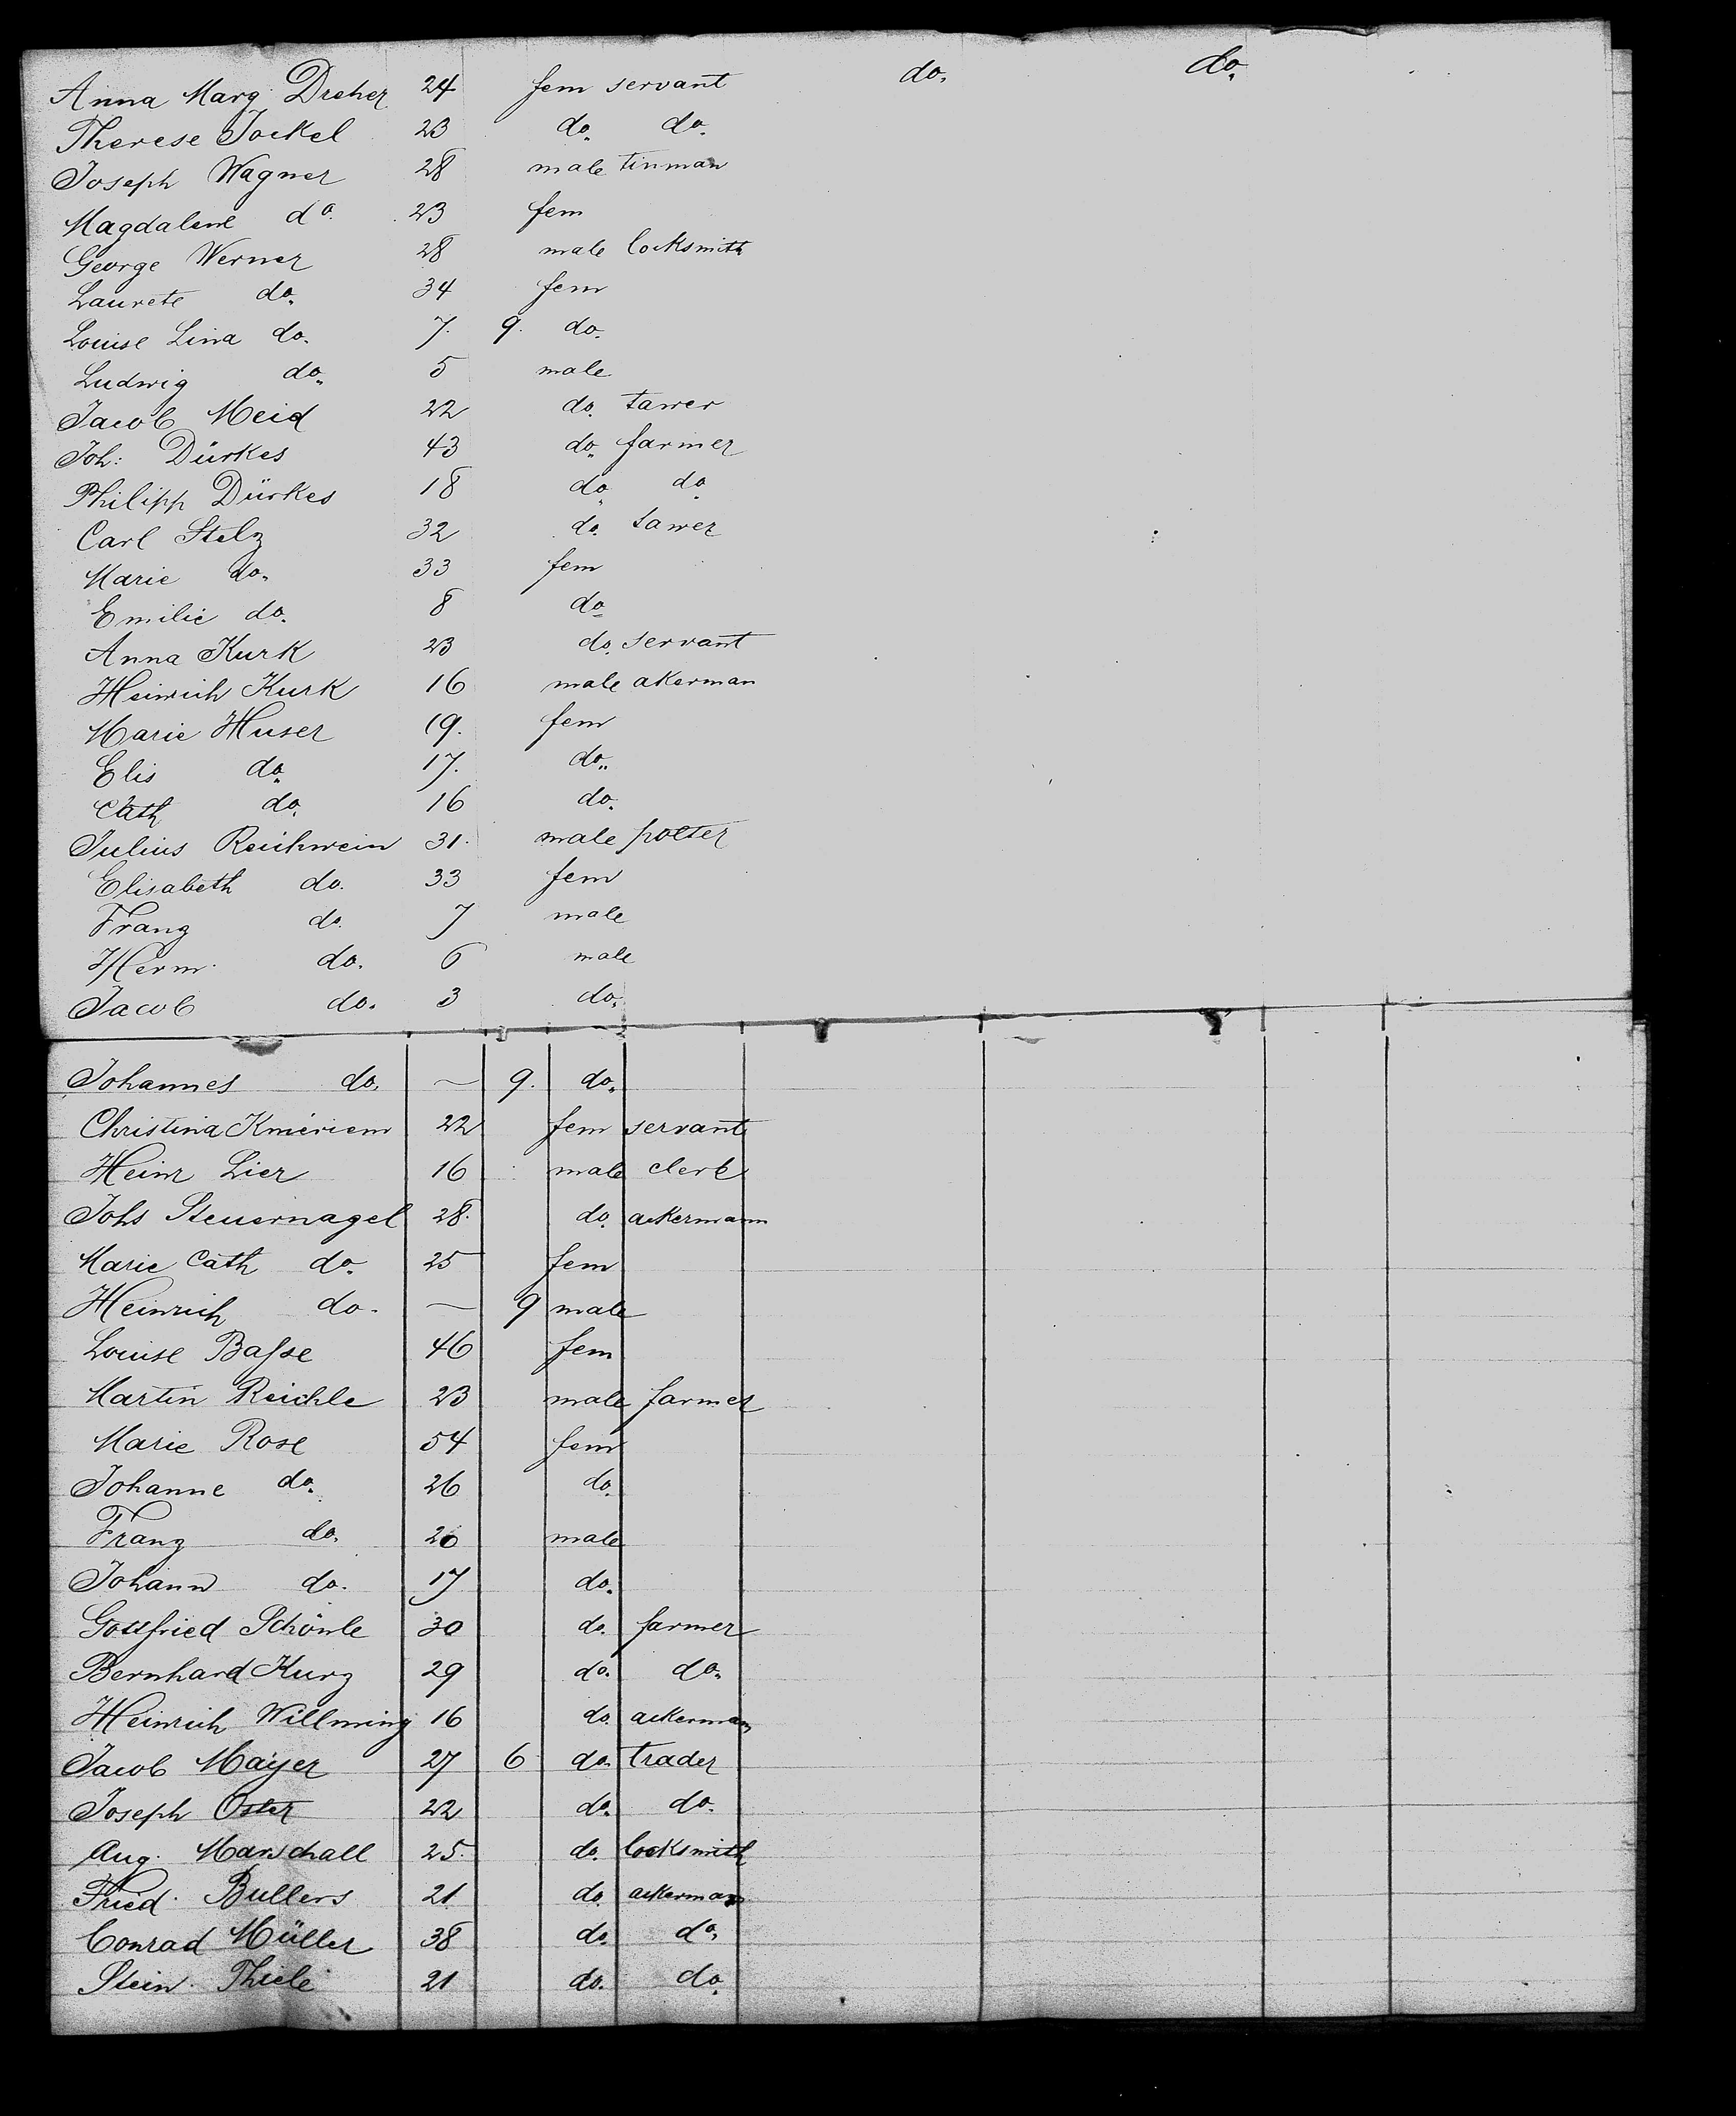 Anna Marg. Dreher 24 fem servant do. do.
Therese Jockel 23 do. do.
Joseph Wagner 28 male tinman
Magdalene do. 23 fem
George Werner 28 male locksmith
Laurete do. 34 fem
Louise Lina do. 7. 9. do.
Ludwig do. 5 male
Jacob Meid 22 do. tawer
Joh: Dürkes 43 do. farmer
Philipp Dürkes 18 do. do.
Carl Stelz 32 do. tawer
Marie do. 33 fem
Emilie do. 8 do.
Anna Kurk 23 do. servant
Heinrich Kurk 16 male akerman
Marie Huser 19. fem
Elis do. 17. do.
Cath do. 16 do.
Julius Reichwein 31. male potter
Elisabeth do. 33 fem
Franz do. 7 male
Herm. do. 6 male
Jacob do. 3 do.
Johannes do. — 9. do.
Christina 22 fem servant
Heinr Lier 16 male clerk
Johs Steuernagel 28. do. ackermann
Marie Cath do. 25 fem
Heinrich do. — 9 male
Louise Baſse 46 fem
Martin Reichle 23 male farmer
Marie Rose 54 fem
Johanne do. 26 do.
Franz do. 20 male
Johann do. 17 do.
Gottfried Schönle 30 do. farmer
Bernhard Kurz 29 do. do.
Heinrich Willming 16 do. ackerman
Jacob Mayer 27 6 do. trader
Joseph Oster 22 do. do.
Aug. Marschall 25. do. locksmith
Fried. Bullers 21 do. ackerman
Conrad Müller 38 do. do.
Stein. Thiele 21 do. do.